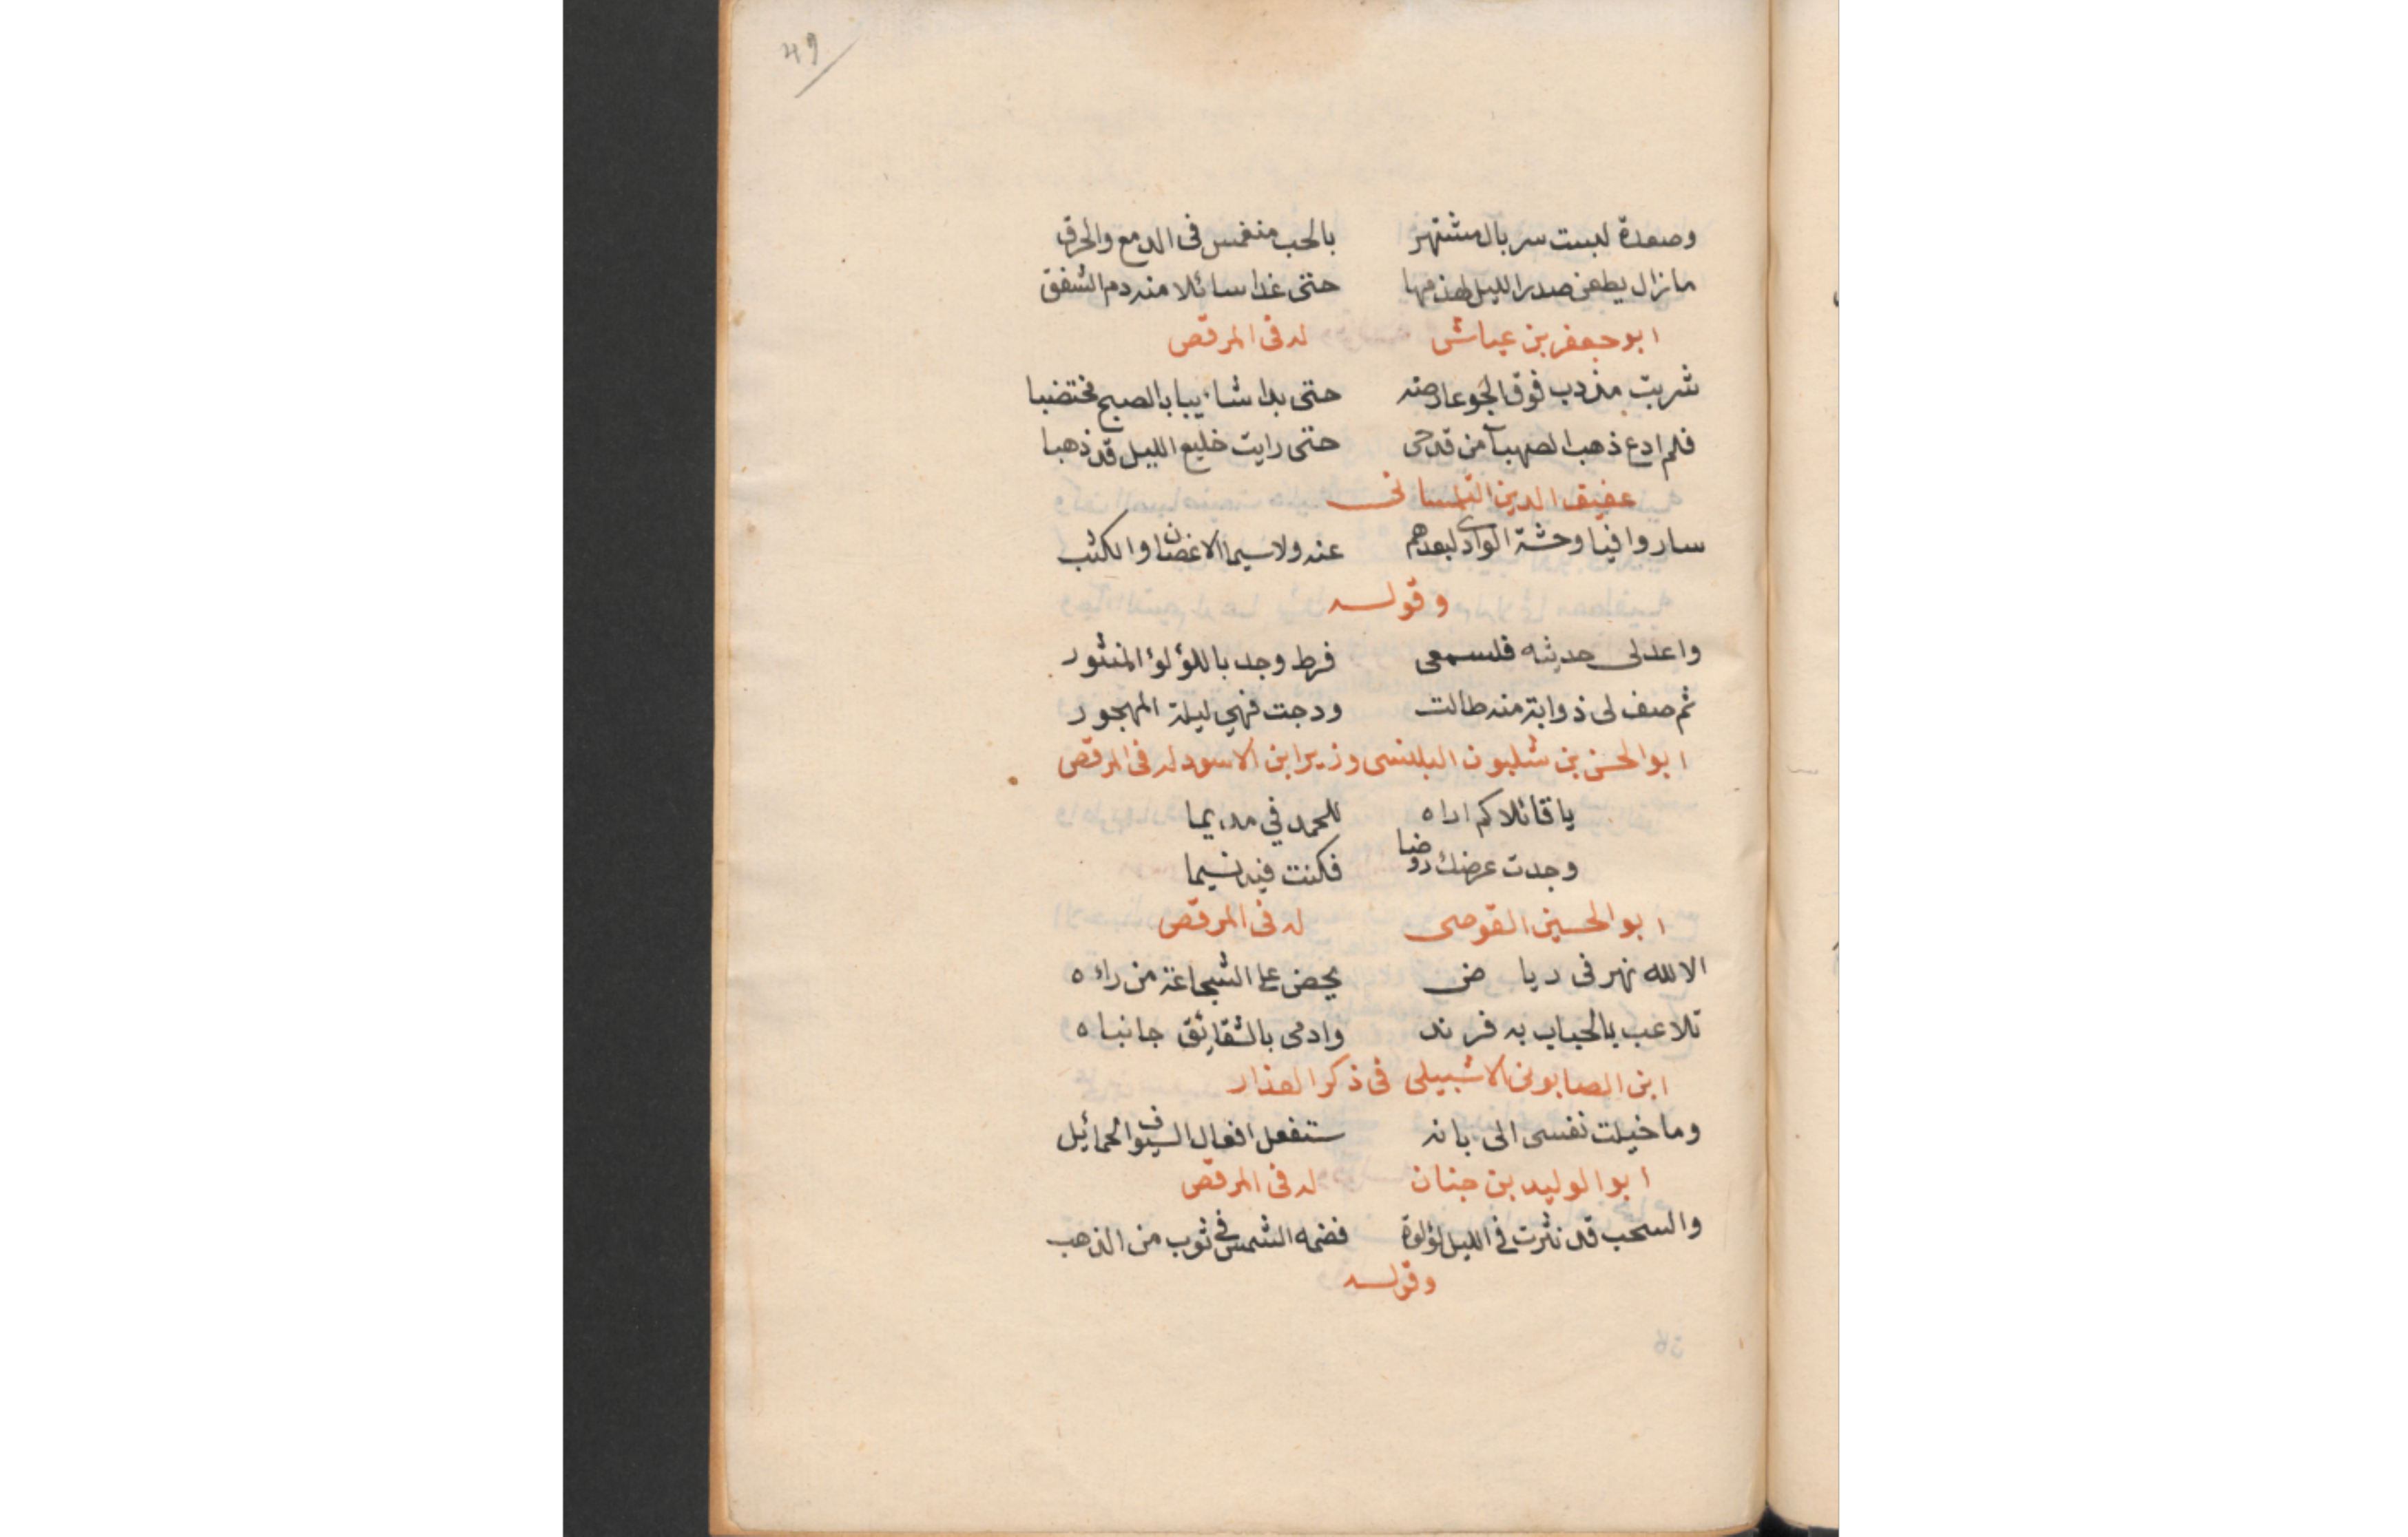 49
وصعدة لبست سربال مشتهر بالحب منغمس فى الدمع والحرق
مازال يطعن صدر الليل لهذمها حتى غدا سائلا منه دم الشفق
ابو جعفر بن عياش له فى المرقص
شربت منه دب فوق الجو عارضه حتى بدا شائبا بالصبح مختضبا
فلم ادع ذهب الصهبآ من قدحى حتى رايت خليع الليل قد ذهبا
عفيف الدين التلمسانى
ساروا فيا وحشة الوادى لبعدهم عنه ولاسيما الاغصان والكثب
وقوله
واعد لى حديثه فلسمعى فرط وجد باللؤلؤ المنثور
ثم صف لى ذوابة منه طالت ودجت فهي ليلة المهجور
ابو الحسن بن شلبون البلنسى وزير ابن الاسود له فى المرقص
يا قائلا كم اراه للحمد في مديما
وجدت عرضك روضا فكنت فيه نسيما
ابو الحسين القوصى له فى المرقص
الا لله نهر فى رياض يحض على الشجاعة من راه
تلاعب بالحباب به فرند وادمى بالشقائق جانباه
ابن الصابونى الاشبيلى فى ذكر العذار
وما خيلت نفسى الى بانه ستفعل افعال السيوف الحمائيل
ابو الوليد بن جنان له فى المرقص
والسحب قد نثرت في الليل لؤلؤة فضمه الشمس في ثوب من الذهب
وقوله